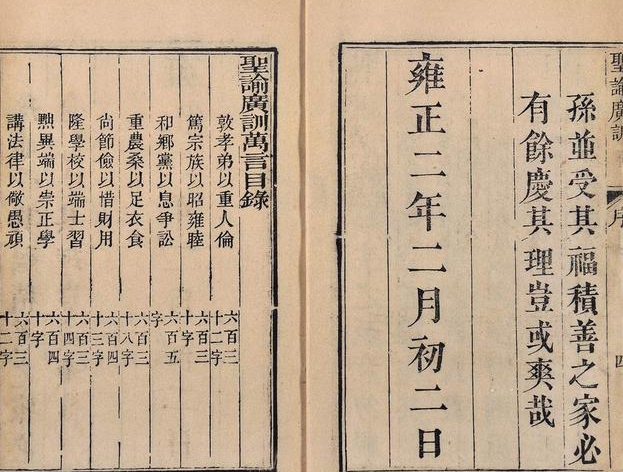 聖諭廣訓 序 四
孫並受其福積善之家必
有餘慶其理豈或爽哉
雍正二年二月初二日
聖諭廣訓萬言目錄
敦孝弟以重人倫 六百三十二字
篤宗族以昭雍睦 六百三十字
和鄉黨以息爭訟 六百五字
重農桑以足衣食 六百三十八字
尙節儉以惜財用 六百四十三字
隆學校以端士習 六百三十四字
黜異端以崇正學 六百四十字
講法律以儆愚頑 六百三十二字